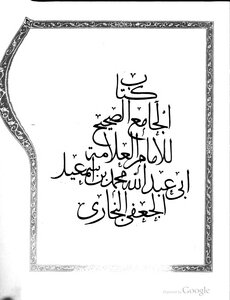 كتاب
الجامع الصحيح
للامام العلامة
ابى عبد الله محمد بن اسمعيل
الجعفى البخارى
Digitized by Google